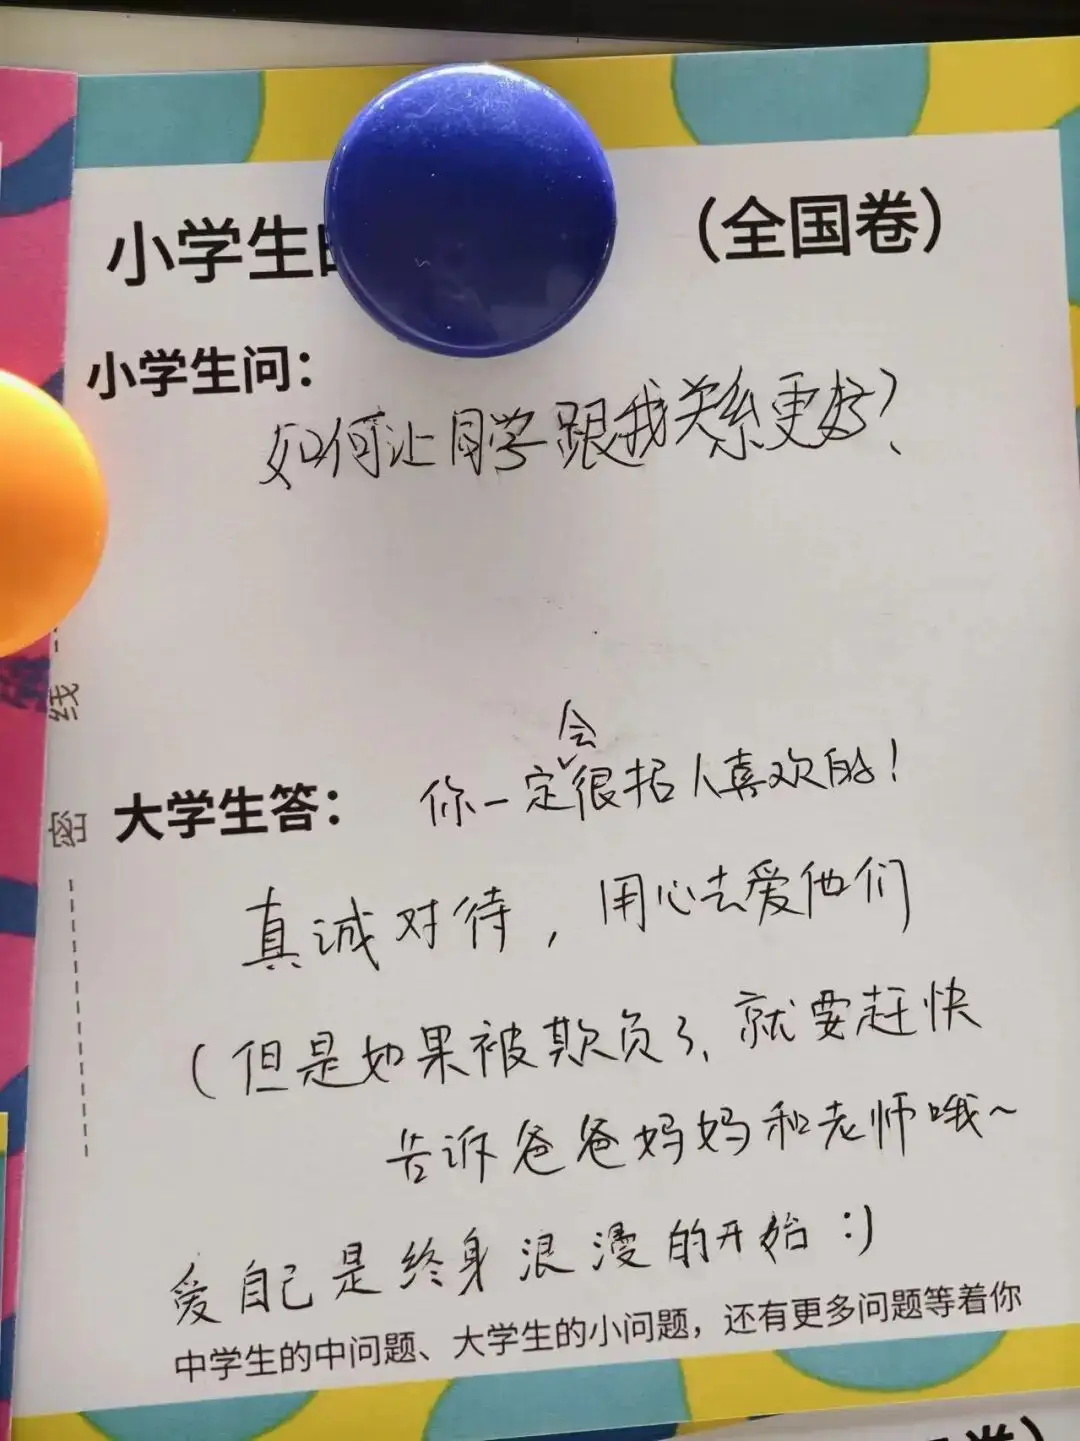 小学生 （全国卷）
小学生问：
如何让同学跟我关系更好？
会
大学生答： 你一定很招人喜欢的！
真诚对待，用心去爱他们
（但是如果被欺负了、就要赶快
告诉爸爸妈妈和老师哦~
爱自己是终身浪漫的开始 :)
中学生的中问题、大学生的小问题，还有更多问题等着你
线
密
卷）